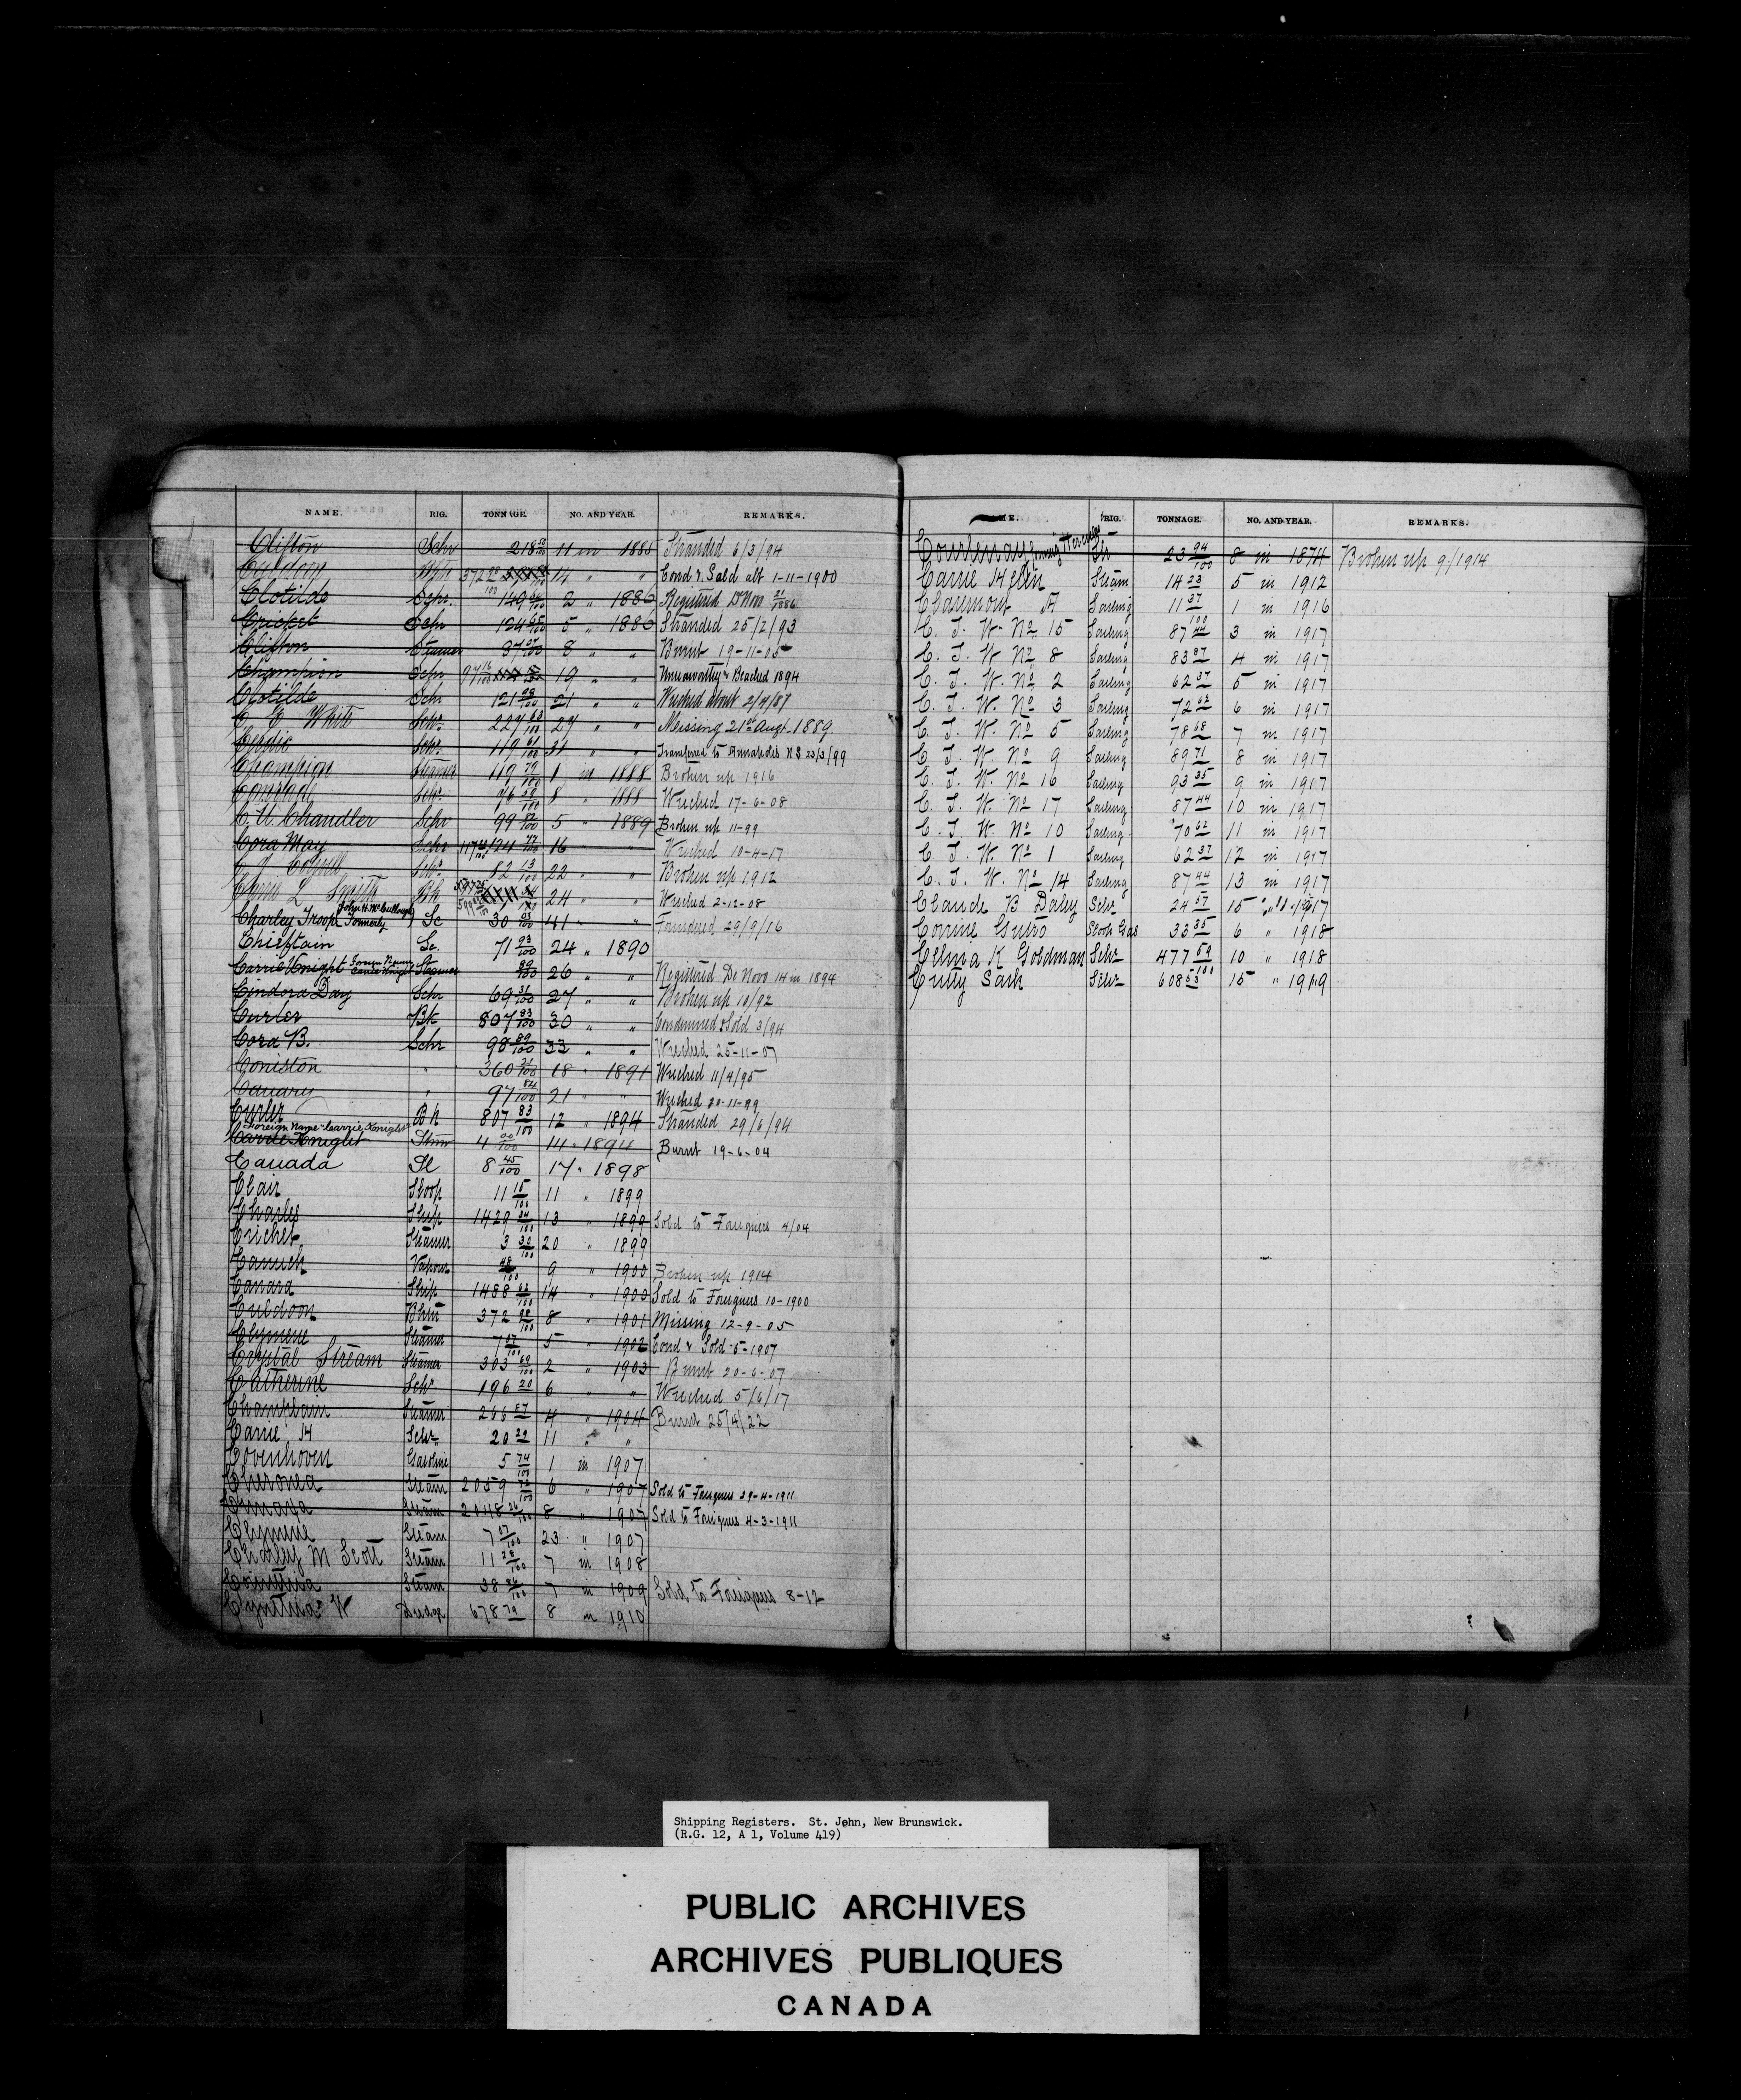 NAME. RIG. TONNAGE. NO. AND YEAR. REMARKS.
Clifton Schr 218 11 in 1885 Stranded 6/3/94
372 14 " " Cond & Sold abt 1-11-1900
Clotilde Schr. 149 2 " 1886 Registered D Nov 1886
Cricket Schr 124 5 " 1886 Stranded 25/2/93
Clifton Steamer 87 8 " " Burnt 19-11-05
Champion Schr 97 16/100 19 " " Unseaworthy & Beached 1894
Clotilde Schr. 121 98/100 21 " " Wrecked about 2/4/87
C E White Schr. 227 63/100 27 " " Missing 21st Augt. 1889.
Schr. 119 61/100 31 " " Transferred to Annapolis N S 23/3/99
Champion Steamer 119 79/100 1 in 1888 Broken up 1916
Schr. 76 8 " 1888 Wrecked 17-6-08
C. U. Chandler Schr 99 82/100 5 " 1889 Broken up 11-99
Cora May Schr 117 124 16 " " Wrecked 10-4-17
Schr. 82 13/100 22 " " Broken up 1912
L Smith Bk 24 " " Wrecked 2-12-08
Charley Troop (John H. McCullough Formerly) Sc 30 93/100 41 " " Foundered 29/9/16
Chieftain Sc. 71 93/100 24 " 1890
Carrie Knight Foreign Name Carrie Knight Steamer 89/100 26 " " Registered De Novo 14 in 1894
Cindora Day Schr 69 31/100 27 " " Broken up 10/92
Curler Bk 807 83/100 30 " " Condemned & Sold 3/94
Cora B. Schr 98 89/100 33 " " Wrecked 25-11-07
Coniston " 360 18 " 1891 Wrecked 11/4/95
Canary " 97 84/100 21 " " Wrecked 20-11-99
Curler Bk 807 83/100 12 " 1894 Stranded 29/6/94
Foreign Name "Carrie Knight"
Carrie Knight Stmr 4 00/100 14 " 1894 Burnt 19-6-04
Canada Sl 8 45/100 17 " 1898
Clair Sloop 11 15/100 11 " 1899
Charles Ship 1429 34/100 13 " 1899 Sold to Foreigners 4/04
Cricket Steamer 3 30/100 20 " 1899
Vapour 48/100 9 " 1900 Broken up 1914
Canara Ship 1488 63/100 14 " 1900 Sold to Foreigners 10-1900
Culdoon Bktn 372 98/100 8 " 1901 Missing 12-9-05
Clymene Steamer 7 07/100 5 " 1902 Cond & Sold -5-1907
Crystal Stream Steamer 303 69/100 2 " 1903 Burnt 20-6-07
Catherine Schr. 196 20 6 " " Wrecked 5/6/17
Champlain Steamer 266 87 4 " 1904 Burnt 25/4/22
Carrie H Schr. 20 29 11 " "
Covenhoven Gasoline 5 74/100 1 in 1907
Cheronea Steam 2059 72/100 6 " 1907 Sold to Foreigners 29-4-1911
Cunaxa Steam 2048 26/100 8 " 1907 Sold to Foreigners 4-3-1911
Clymene Steam 7 07/100 23 " 1907
Charley M Scott Steam 11 28/100 7 in 1908
Steam 38 86/100 7 in 1909 Sold to Foreigners 8-12
Cynthia W Dredge 678 79 8 in 1910
RIG. TONNAGE. NO. AND YEAR. REMARKS.
Courtenay Formerly Hercules Str 23 94/100 8 in 1874 Broken up 9/1914
Carrie Helen Steam 14 23 5 in 1912
Claremont A Sailing 11 37/100 1 in 1916
C. T. W. No. 15 Sailing 87 44 3 in 1917
C. T. W No. 8 Sailing 83 87 4 in 1917
C. T. W. No. 2 Sailing 62 37 5 in 1917
C. T. W. No 3 Sailing 72 62 6 in 1917
C. T. W. No 5 Sailing 78 68 7 in 1917
C. T. W. No 9 Sailing 89 71 8 in 1917
C. T. W. No 16 Sailing 93 35 9 in 1917
C. T. W. No 17 Sailing 87 44 10 in 1917
C. T. W. No 10 Sailing 70 62 11 in 1917
C. T. W. No 1 Sailing 62 37 12 in 1917
C. T. W. No 14 Sailing 87 44 13 in 1917
Claude B Daley Schr 24 57 15 " 1917
Corrine Sloop Gas 33 35 6 " 1918
Celma K Goldman Schr 477 59/100 10 " 1918
Cutty Sark Schr 608 53 15 " 1919
Shipping Registers. St. John, New Brunswick.
(R.G. 12, A 1, Volume 419)
PUBLIC ARCHIVES
ARCHIVES PUBLIQUES
CANADA